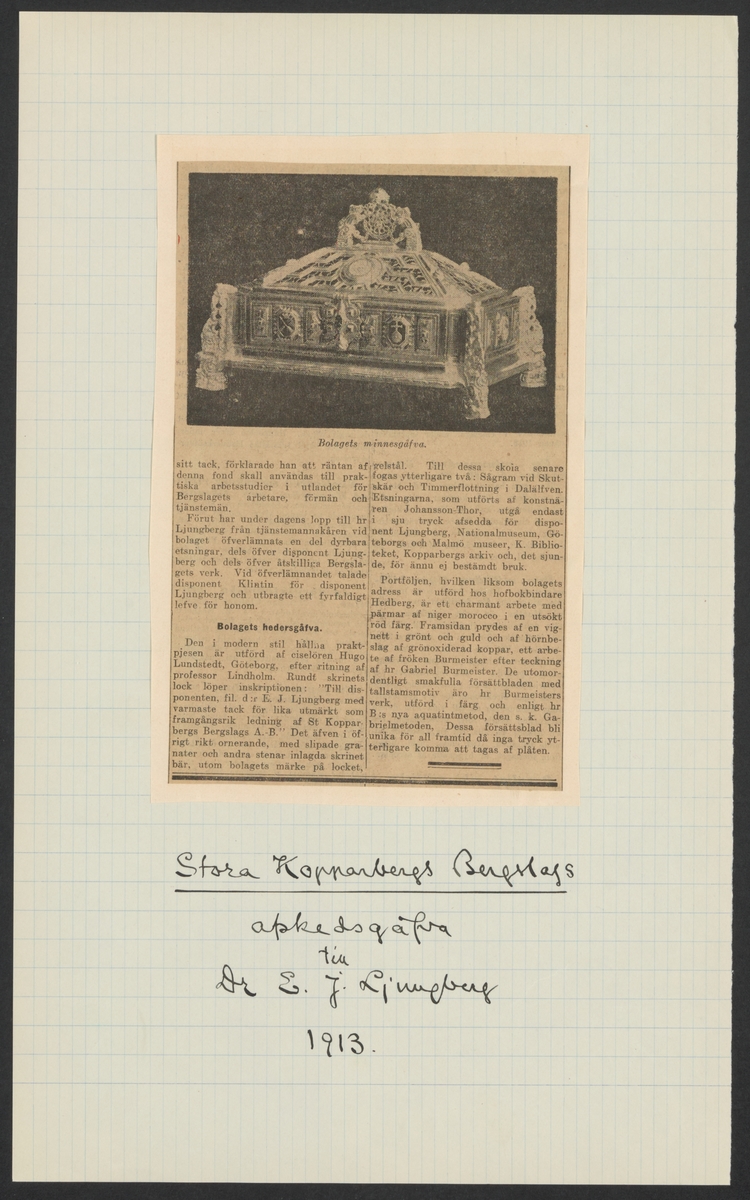 Bolagets minnesgåfva.
sitt tack, förklarade han att räntan af
denna fond skall användas till prak-
tiska arbetsstudier i utlandet för
Bergslagets arbetare, förmän och
tjänstemän.
Förut har under dagens lopp till hr
Ljungberg från tjänstemannakåren vid
bolaget öfverlämnats en del dyrbara
etsningar, dels öfver disponent Ljung-
berg och dels öfver åtskilliga Bergsla-
gets verk. Vid öfverlämnandet talade
disponent Klintin för disponent
Ljungberg och utbragte ett fyrfaldigt
lefve för honom.
Bolagets hedersgåfva.
Den i modern stil hållna prakt-
pjesen är utförd af ciselören Hugo
Lundstedt, Göteborg, efter ritning af
professor Lindholm. Rundt skrinets
lock löper inskriptionen: "Till dis-
ponenten, fil. d:r E. J. Ljungberg med
varmaste tack för lika utmärkt som
framgångsrik ledning af St Koppar-
bergs Bergslags A.-B." Det äfven i öf-
rigt rikt ornerande, med slipade gra-
nater och andra stenar inlagda skrinet
bär, utom bolagets märke på locket,
gelstål. Till dessa skola senare
fogas ytterligare två: Sågram vid Skut-
skär och Timmerflottning i Dalälfven.
Etsningarna, som utförts af konstnä-
ren Johansson-Thor, utgå endast
i sju tryck afsedda för dispo-
nent Ljungberg, Nationalmuseum, Gö-
teborgs och Malmö museer, K. Biblio-
teket, Kopparbergs arkiv och, det sjun-
de, för ännu ej bestämdt bruk.
Portföljen, hvilken liksom bolagets
adress är utförd hos hofbokbindare
Hedberg, är ett charmant arbete med
pärmar af niger morocco i en utsökt
röd färg. Framsidan prydes af en vig-
nett i grönt och guld och af hörnbe-
slag af grönoxiderad koppar, ett arbe-
te af fröken Burmeister efter teckning
af hr Gabriel Burmeister. De utomor-
dentligt smakfulla försättbladen med
tallstamsmotiv äro hr Burmeisters
verk, utförd i färg och enligt hr
B:s nya aquatintmetod, den s. k. Ga-
brielmetoden. Dessa försättsblad bli
unika för all framtid då inga tryck yt-
terligare komma att tagas af plåten.
Stora Kopparbergs Bergslags
afskedsgåfva
till
Dr E. J. Ljungberg
1913.